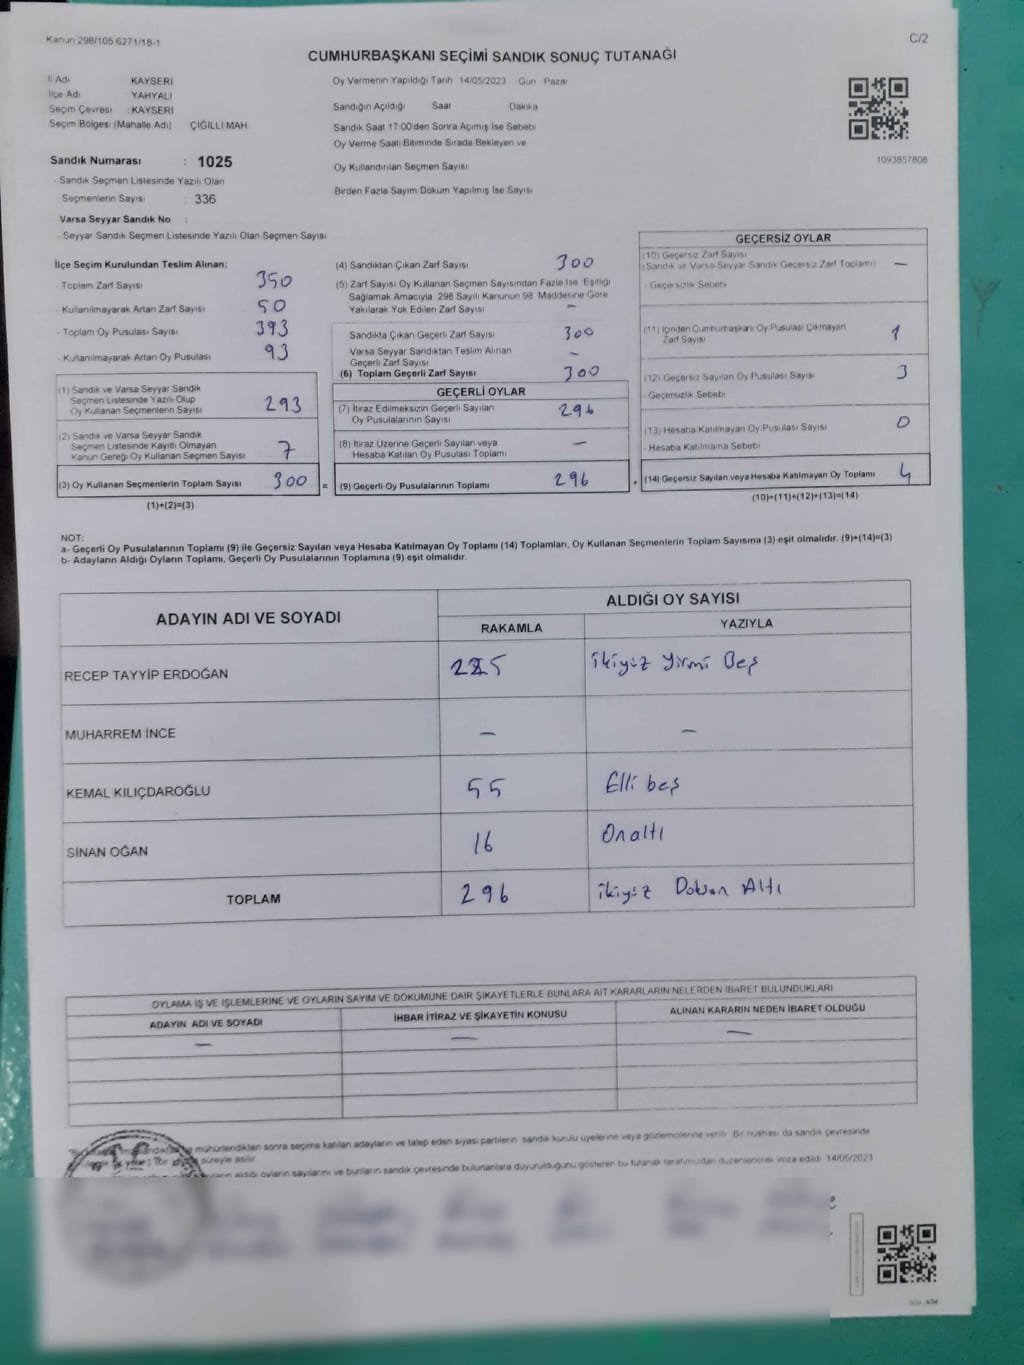 Kanun 298/105 6271/18-1
C/2
CUMHURBAŞKANI SEÇİMİ SANDIK SONUÇ TUTANAĞI
İl Adı KAYSERİ
İlçe Adı YAHYALI
Seçim Çevresi : KAYSERİ
Seçim Bölgesi (Mahalle Adı) ÇIĞILLI MAH.
Sandık Numarası : 1025
- Sandık Seçmen Listesinde Yazılı Olan
Seçmenlerin Sayısı : 336
Varsa Seyyar Sandık No :
- Seyyar Sandık Seçmen Listesinde Yazılı Olan Seçmen Sayısı
Oy Vermenin Yapıldığı Tarih 14/05/2023 Gün Pazar
Sandığın Açıldığı Saat Dakika
Sandık Saat 17:00'den Sonra Açımış İse Sebebi
Oy Verme Saati Bitiminde Sırada Bekleyen ve
Oy Kullandırılan Seçmen Sayısı
Birden Fazla Sayım Döküm Yapılmış İse Sayısı
1093857808
İlçe Seçim Kurulundan Teslim Alınan:
- Toplam Zarf Sayısı 350
- Kullanılmayarak Artan Zarf Sayısı 50
- Toplam Oy Pusulası Sayısı 393
- Kullanılmayarak Artan Oy Pusulası 93
(1) Sandık ve Varsa Seyyar Sandık
Seçmen Listesinde Yazılı Olup
Oy Kullanan Seçmenlerin Sayısı 293
(2) Sandık ve Varsa Seyyar Sandık
Seçmen Listesinde Kayıtlı Olmayan
Kanun Gereği Oy Kullanan Seçmen Sayısı 7
(3) Oy Kullanan Seçmenlerin Toplam Sayısı 300 =
(1)+(2)=(3)
(4) Sandıktan Çıkan Zarf Sayısı 300
(5) Zarf Sayısı Oy Kullanan Seçmen Sayısından Fazla İse Eşitliği
Sağlamak Amacıyla 298 Sayılı Kanunun 98 Maddesine Göre
Yakılarak Yok Edilen Zarf Sayısı –
Sandıkta Çıkan Geçerli Zarf Sayısı 300
Varsa Seyyar Sandıktan Teslim Alınan
Geçerli Zarf Sayısı –
(6) Toplam Geçerli Zarf Sayısı 300
GEÇERLİ OYLAR
(7) İtiraz Edilmeksizin Geçerli Sayılan
Oy Pusulalarının Sayısı 296
(8) İtiraz Üzerine Geçerli Sayılan veya
Hesaba Katılan Oy Pusulası Toplamı –
(9) Geçerli Oy Pusulalarının Toplamı 296 +
GEÇERSİZ OYLAR
(10) Geçersiz Zarf Sayısı
(Sandık ve Varsa Seyyar Sandık Geçersiz Zarf Toplamı) –
- Geçersizlik Sebebi
(11) İçinden Cumhurbaşkanı Oy Pusulası Çıkmayan
Zarf Sayısı 1
(12) Geçersiz Sayılan Oy Pusulası Sayısı 3
- Geçersizlik Sebebi
(13) Hesaba Katılmayan Oy Pusulası Sayısı 0
- Hesaba Katılmama Sebebi
(14) Geçersiz Sayılan veya Hesaba Katılmayan Oy Toplamı 4
(10)+(11)+(12)+(13)=(14)
NOT:
a- Geçerli Oy Pusulalarının Toplamı (9) ile Geçersiz Sayılan veya Hesaba Katılmayan Oy Toplamı (14) Toplamları, Oy Kullanan Seçmenlerin Toplam Sayısına (3) eşit olmalıdır. (9)+(14)=(3)
b- Adayların Aldığı Oyların Toplamı, Geçerli Oy Pusulalarının Toplamına (9) eşit olmalıdır.
ADAYIN ADI VE SOYADI
ALDIĞI OY SAYISI
RAKAMLA YAZIYLA
RECEP TAYYİP ERDOĞAN 225 ikiyüz yirmi Beş
MUHARREM İNCE – –
KEMAL KILIÇDAROĞLU 55 Elli beş
SİNAN OĞAN 16 Onaltı
TOPLAM 296 ikiyüz Doksan Altı
OYLAMA İŞ VE İŞLEMLERİNE VE OYLARIN SAYIM VE DÖKÜMÜNE DAİR ŞİKAYETLERLE BUNLARA AİT KARARLARIN NELERDEN İBARET BULUNDUKLARI
ADAYIN ADI VE SOYADI İHBAR İTİRAZ VE ŞİKAYETİN KONUSU ALINAN KARARIN NEDEN İBARET OLDUĞU
– – –
mühürlendikten sonra seçime katılan adayların ve talep eden siyasi partilerin sandık kurulu üyelerine veya gözlemcilerine verilir. Bir nüshası da sandık çevresinde
süreyle asılır.
aldığı oyların sayılarını ve bunların sandık çevresinde bulunanlara duyurulduğunu gösteren bu tutanak tarafımızdan düzenlenerek imza edildi. 14/05/2023